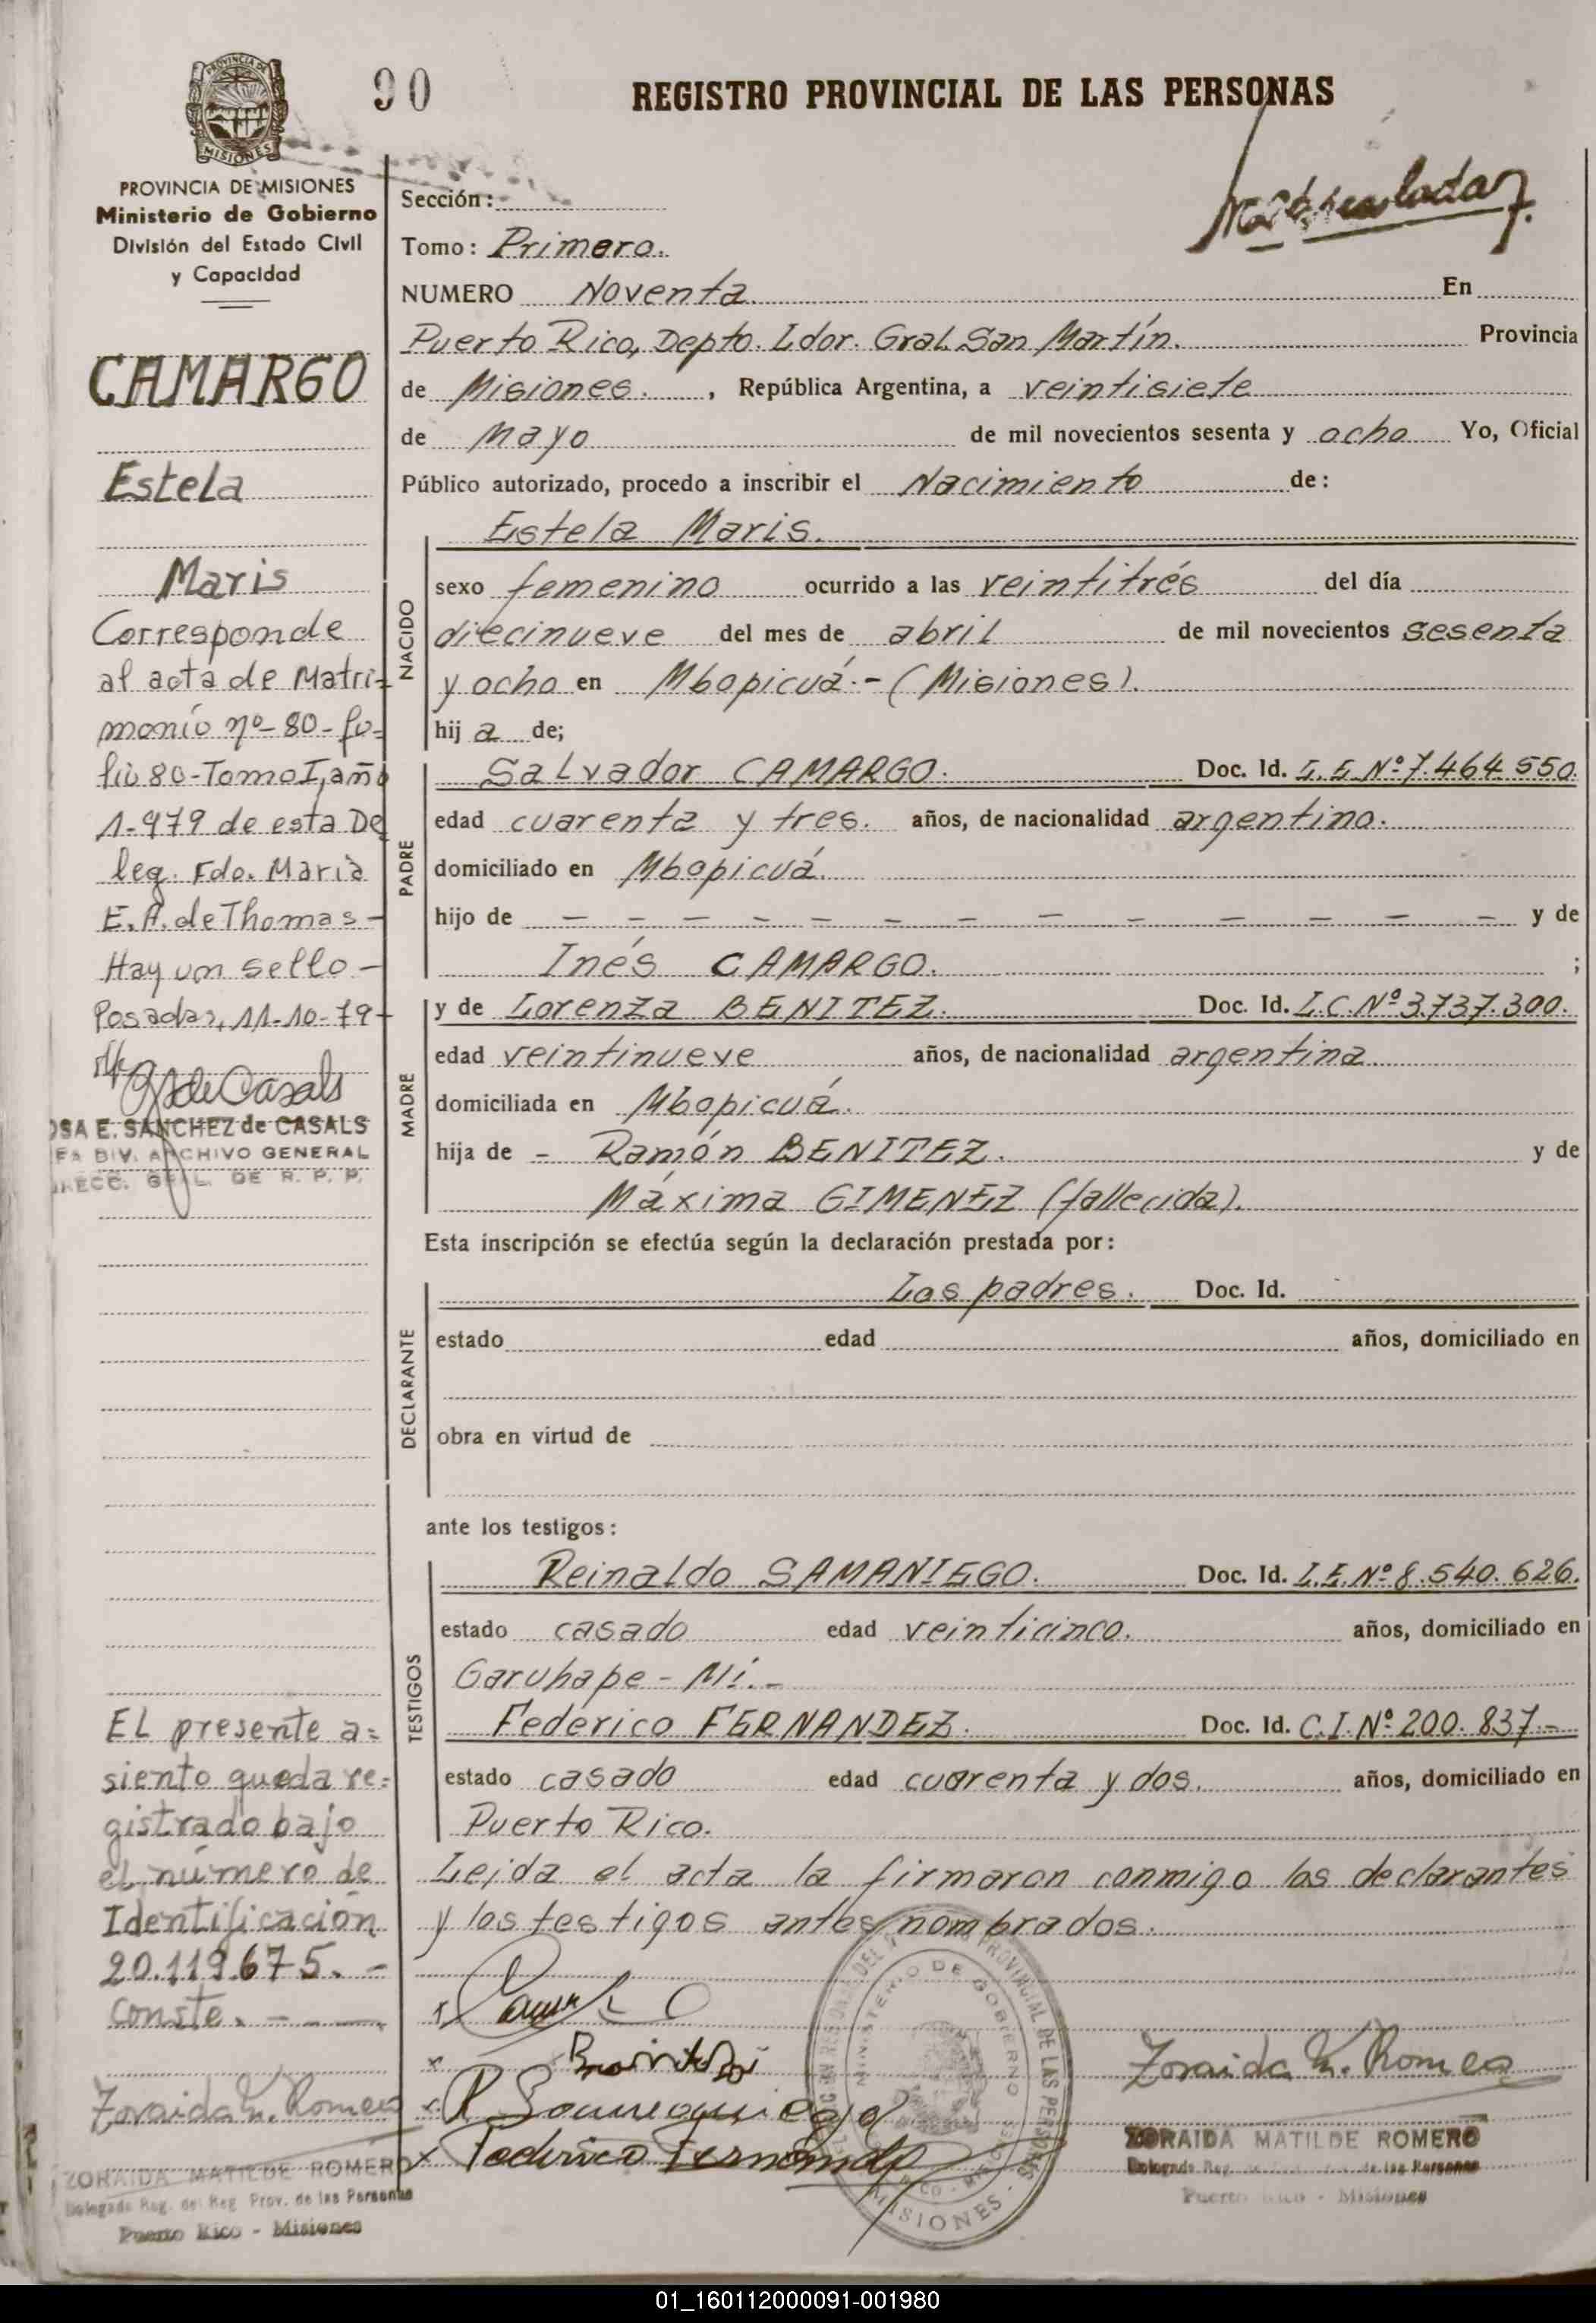 90
REGISTRO PROVINCIAL DE LAS PERSONAS
PROVINCIA DE MISIONES
MISIONES
PROVINCIA DE MISIONES
Ministerio de Gobierno
División del Estado Civil
y Capacidad
CAMARGO
Estela
Maris
Corresponde
al acta de Matri-
monio nº- 80- fo-
lio 80-Tomo I, año
1-979 de esta De
leg. Fdo. María
E.A. de Thomas-
Hay un sello-
Posadas, 11-10-79-
OSA E. SANCHEZ de CASALS
EFA DIV. ARCHIVO GENERAL
DIRECC. GRAL. DE R. P. P.
El presente a=
siento queda re=
gistrado bajo
el número de
Identificación
20.119.675.-
conste.-
Zoraida M. Romero
ZORAIDA MATILDE ROMERO
Delegada Reg. del Reg. Prov. de las Personas
Puerto Rico - Misiones
Sección:
Tomo: Primero.
NUMERO Noventa En
Puerto Rico, Depto. Ldor. Gral. San Martín. Provincia
de Misiones. , República Argentina, a veintisiete
de Mayo de mil novecientos sesenta y ocho Yo, Oficial
Público autorizado, procedo a inscribir el Nacimiento de:
NACIDO
Estela Maris.
sexo femenino ocurrido a las veintitrés del día
diecinueve del mes de abril de mil novecientos sesenta
y ocho en Mbopicuá.- (Misiones).
hij a de;
PADRE
Salvador CAMARGO. Doc. Id. L.E.Nº 7.464.550.
edad cuarenta y tres. años, de nacionalidad argentino.
domiciliado en Mbopicuá.
hijo de - - - - - - - - - - - - - y de
Inés CAMARGO. ;
MADRE
y de Lorenza BENITEZ. Doc. Id. L.C.Nº 3.737.300.
edad veintinueve años, de nacionalidad argentina
domiciliada en Mbopicuá.
hija de - Ramón BENITEZ. y de
Máxima GIMENEZ (fallecida).
Esta inscripción se efectúa según la declaración prestada por:
DECLARANTE
Los padres. Doc. Id.
estado edad años, domiciliado en
obra en virtud de
ante los testigos:
TESTIGOS
Reinaldo SAMANIEGO. Doc. Id. L.E.Nº 8.540.626.
estado casado edad veinticinco. años, domiciliado en
Garuhape - Mí.-
Federico FERNANDEZ. Doc. Id. C.I.Nº 200.837.-
estado casado edad cuarenta y dos. años, domiciliado en
Puerto Rico.
Leida el acta la firmaron conmigo los declarantes
y los testigos antes nombrados.
Federico Fernandez
MINISTERIO DE GOBIERNO
PROVINCIAL DE LAS PERSONAS
MISIONES
Zoraida M. Romero
ZORAIDA MATILDE ROMERO
Delegada Reg. de las Personas
Puerto Rico - Misiones
01_160112000091-001980